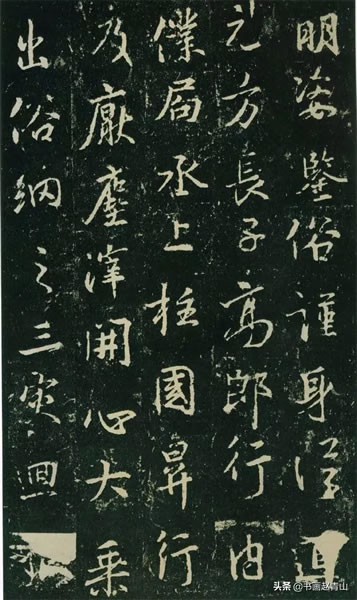 明姿鑒俗謹身
元方長子高郎行內
僕局丞上柱國昇行
及厭塵滓開心大乘
出俗網之三災迴
头条@书画赵青山